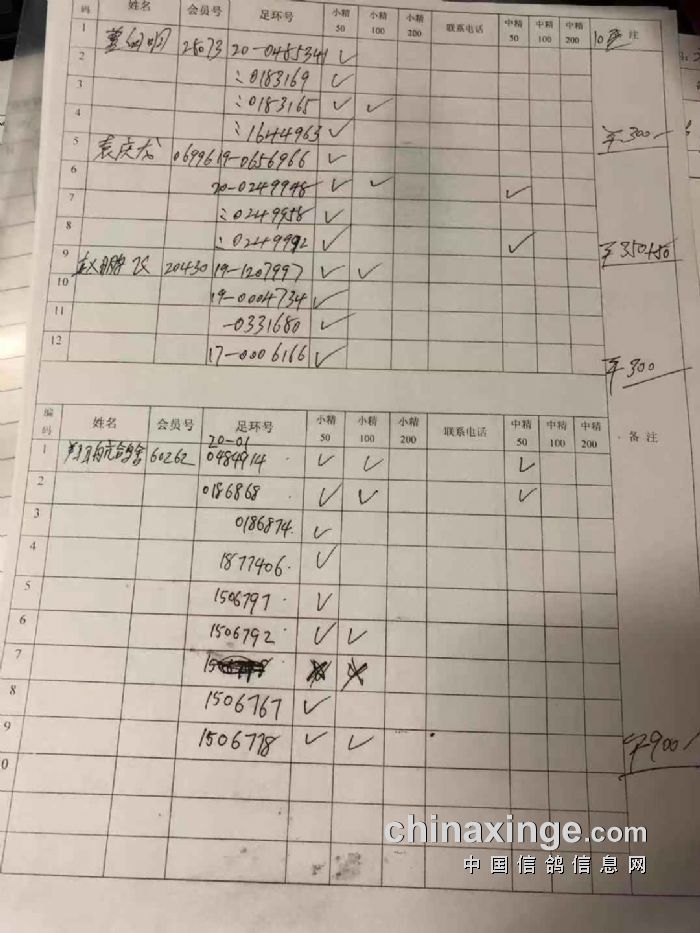 码 姓名 会员号 足环号 小精50 小精100 小精200 联系电话 中精50 中精100 中精200 注
1 28073 20-0485341 ✓
2 ;0183169 ✓
3 ;0183165 ✓ ✓
4 ;1644963 ✓ ¥300/
5 袁庆龙 069961 19-0656966 ✓
6 20-0249948 ✓ ✓ ✓
7 ;0249958 ✓
8 ;0249992 ✓ ✓ ¥350+50
9 赵鹏飞 20430 19-1207997 ✓ ✓
10 19-0004734 ✓
11 -0331680 ✓
12 17-0006166 ✓ ¥300
编码 姓名 会员号 足环号 小精50 小精100 小精200 联系电话 中精50 中精100 中精200 备注
20-01
1 翔宇鸽舍 60262 0484914 ✓ ✓ ✓
2 0186868 ✓ ✓ ✓
3 0186874 ✓
4 1877406 ✓
5 1506797 ✓
6 1506792 ✓ ✓
7
8 1506767 ✓
9 1506778 ✓ ✓ ¥900/
0
chinaxinge.com
中国信鸽信息网